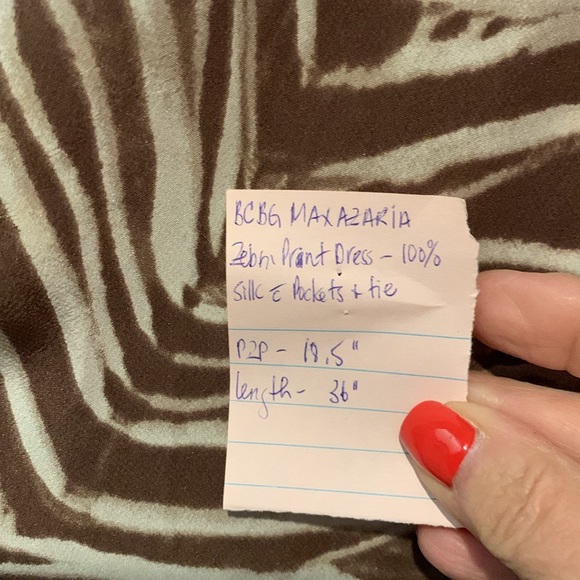 BCBG MAXAZARIA
Zebra Print Dress - 100%
Silk c Pockets + tie
P2P - 18.5"
length - 36"